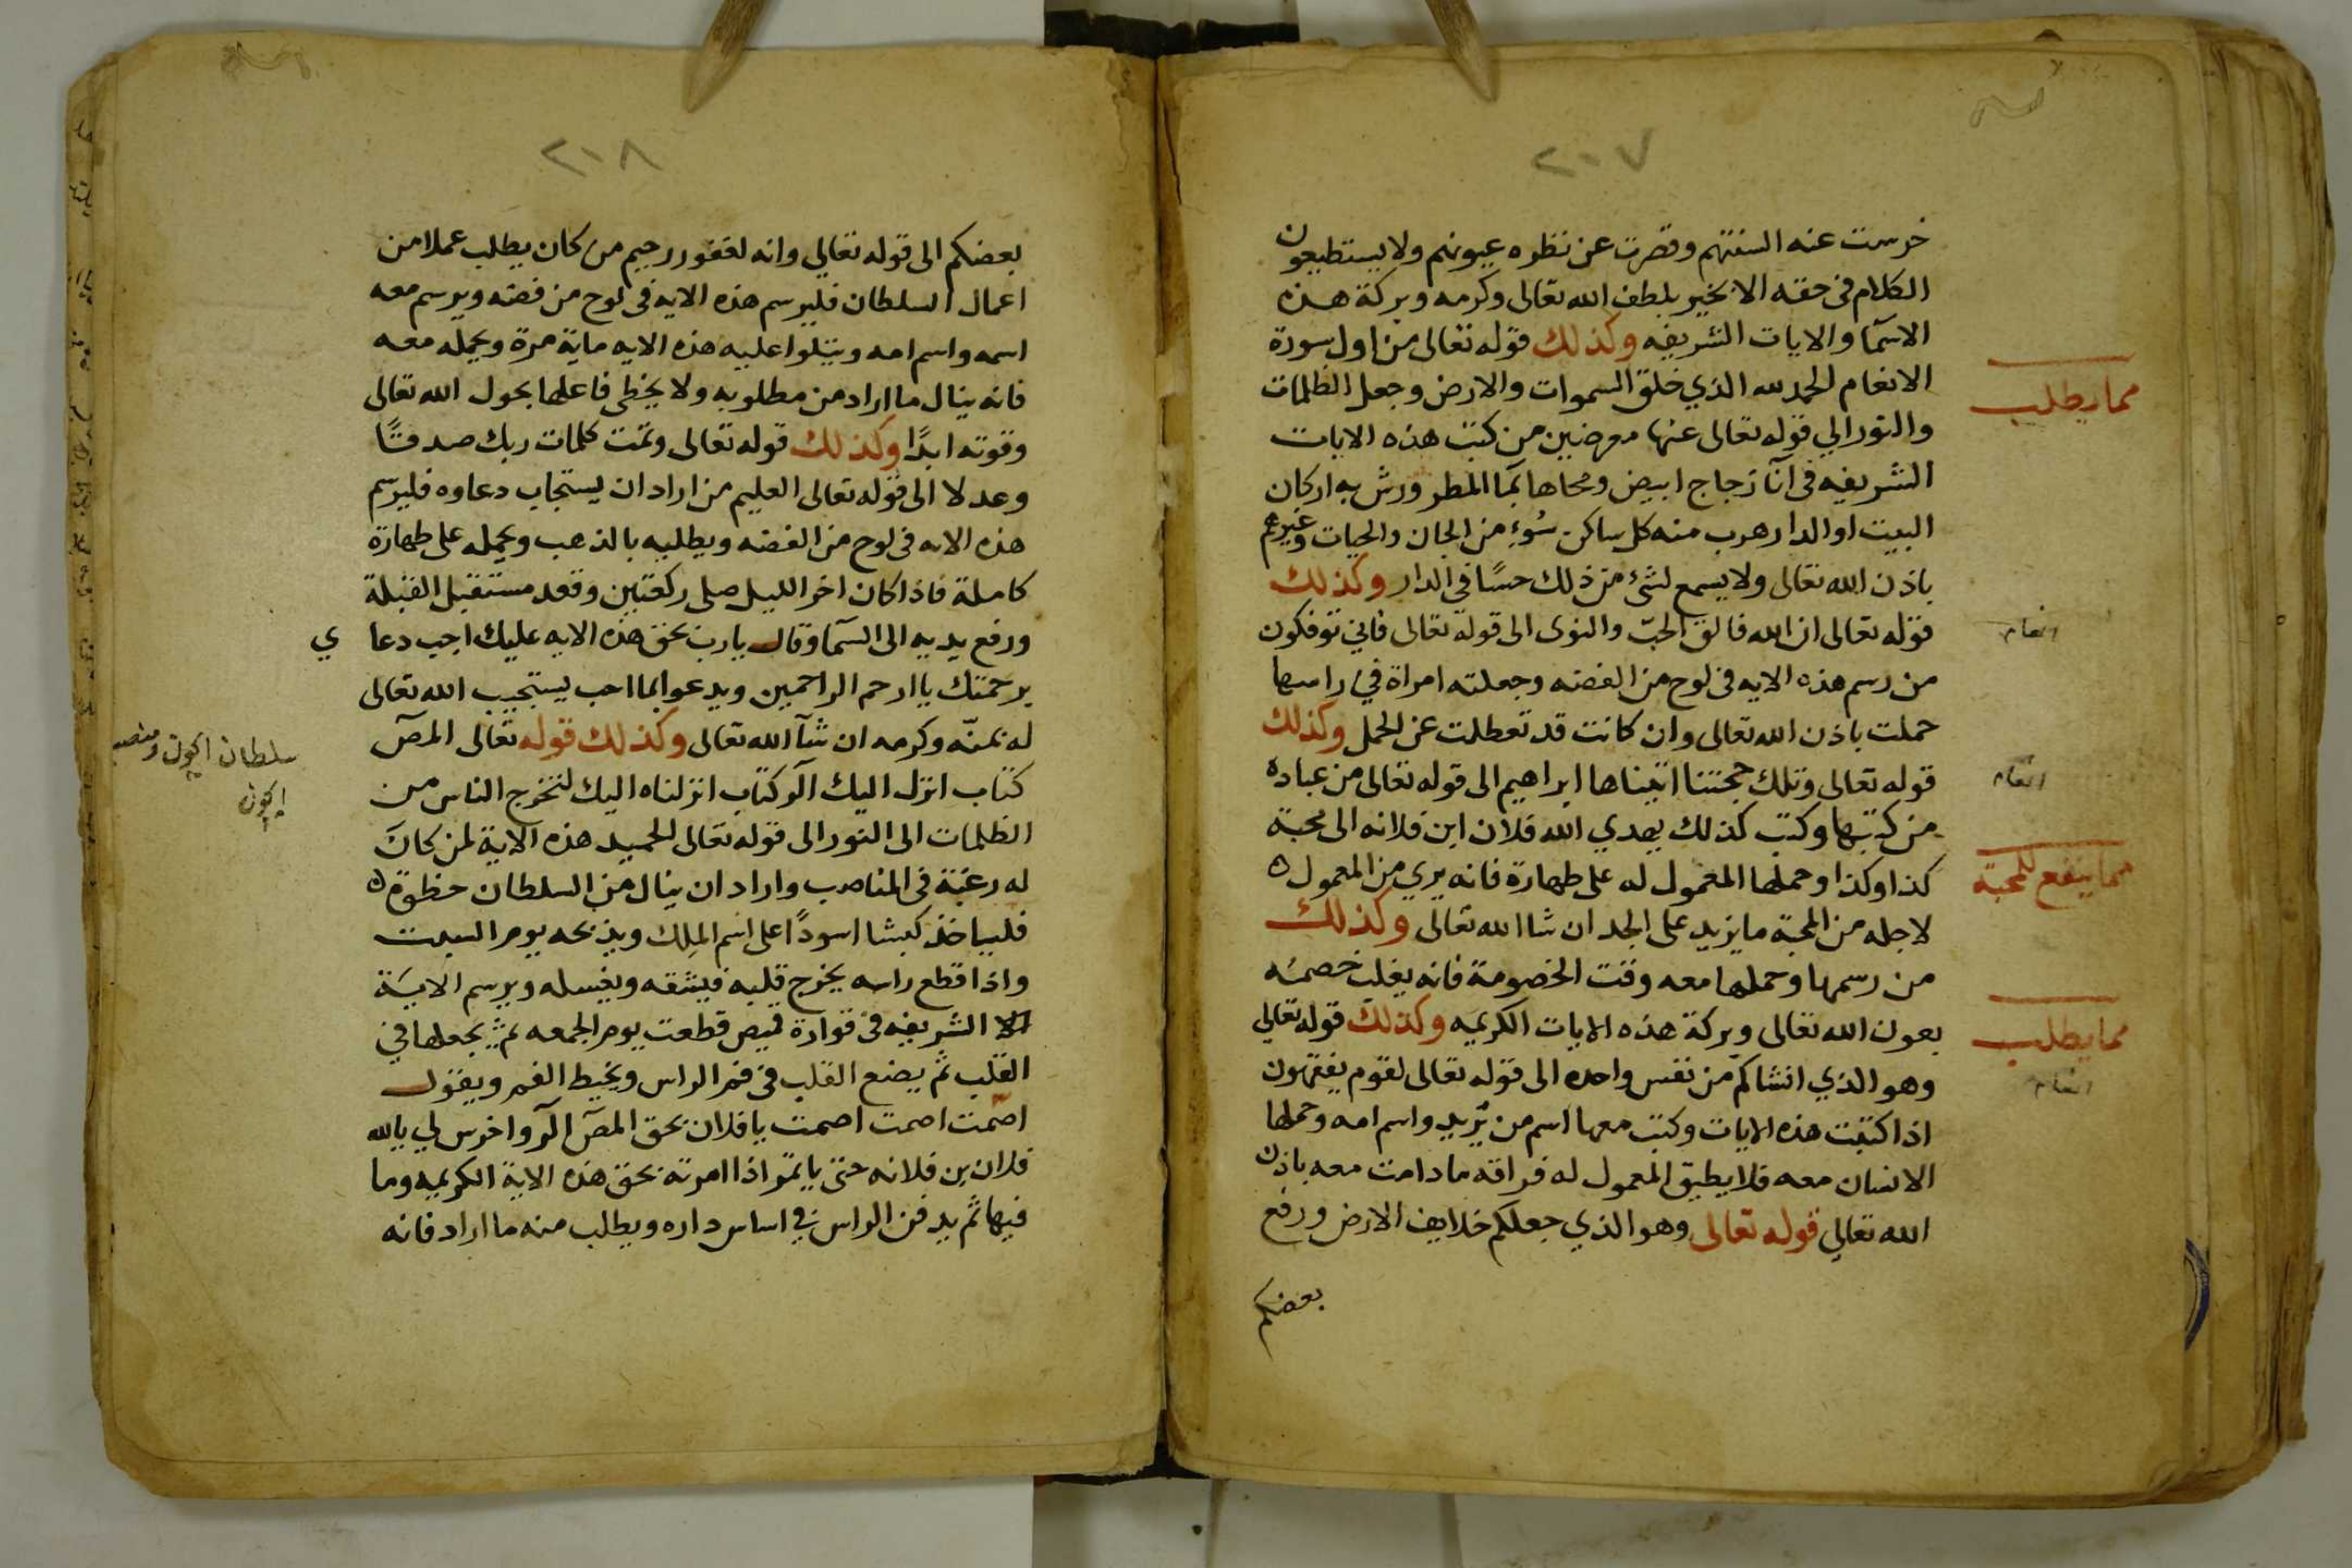 ٢٠٧
خرست عنه السنتهم وقصرت عن نظره عيونهم ولا يستطيعون
الكلام فى حقه الا بخير بلطف الله تعالى وكرمه وبركة هذه
الاسمآ والايات الشريفه وكذلك قوله تعالى من اول سورة
الانعام الحمد لله الذي خلق السموات والارض وجعل الظلمات
مما يطلب
والنور الي قوله تعالى عنها معرضين من كتب هذه الايات
الشريفه فى آنآ زجاج ابيض ومحاها بمآ المطر ورش به اركان
البيت او الدار هرب منه كل ساكن سُوءٍ من الجان والحيات وغيرهم
باذن الله تعالى ولا يسمع لشئ من ذلك حسًا في الدار وكذلك
قوله تعالى ان الله فالق الحبّ والنوى الى قوله تعالى فاني توفكون
انعام
من رسم هذه الايه فى لوح من الفضه وجعلته امراة في راسها
حملت باذن الله تعالى وان كانت قد تعطلت عن الحمل وكذلك
قوله تعالى وتلك حجتنا اتيناها ابراهيم الى قوله تعالى من عباده
انعام
من كتبها وكتب كذلك يهدي الله فلان ابن فلانه الى محبة
كذا وكذا وحملها المعمول له على طهارة فانه يري من المعمول ه
مما ينفع للمحبة
لاجله من المحبة ما يزيد على الحد ان شا الله تعالى وكذلك
من رسمها وحملها معه وقت الخصومة فانه يغلب خصمه
بعون الله تعالى وبركة هذه الايات الكريمه وكذلك قوله تعالي
مما يطلب
وهو الذي انشاكم من نفس واحده الى قوله تعالى لقوم يفقهون
انعام
اذا كتبت هذه الايات وكتب معها اسم من يُريد واسم امه وحملها
الانسان معه فلا يطيق المعمول له فراقه ما دامت معه باذن
الله تعالي قوله تعالى وهو الذي جعلكم خلايف الارض ورفع
بعضكم
٢٠٨
بعضكم الى قوله تعالي وانه لغفور رحيم من كان يطلب عملا من
اعمال السلطان فليرسم هذه الايه فى لوح من فضه ويرسم معه
اسمه واسم امه ويتلوا عليه هذه الايه ماية مرة ويحمله معه
فانه ينال ما اراد من مطلوبه ولا يخطى فاعلها بحول الله تعالى
وقوته ابدًا وكذلك قوله تعالى وتمت كلمات ربك صدقًا
وعدلا الى قوله تعالى العليم من اراد ان يستجاب دعاوه فليرسم
هذه الايه فى لوح من الفضه ويطليه بالذهب ويحمله على طهارة
كاملة فاذا كان اخر الليل صلى ركعتين وقعد مستقبل القبلة
ورفع يديه الى السمآ وقال يا رب بحق هذه الايه عليك اجب دعا ي
برحمتك يا ارحم الراحمين ويدعوا بما احب يستجيب الله تعالى
له بمنّه وكرمه ان شآ الله تعالى وكذلك قوله تعالى المص
سلطان ايچون ومنصب
ايچون
كتاب انزل اليك الر كتاب انزلناه اليك لتخرج الناس من
الظلمات الى النور الى قوله تعالى الحميد هذه الاية لمن كان
له رغبة فى المناصب واراد ان ينال من السلطان حظوة ه
فلياخذ كبشا اسودًا على اسم الملِك ويذبحه يوم السبت
واذا قطع راسه يخرج قلبه فيشقه ويغسله ويرسم الايَة
الشريفه فى قوارة قميص قطعت يوم الجمعه ثم يجعلها في
القلب ثم يضع القلب فى فم الراس ويخيط الفم ويقول
اصمت اصمت اصمت يا فلان بحق المص الر واخرس لي يالله
فلان بن فلانه حتى ياتمر اذا امرته بحق هذه الاية الكريمه وما
فيها ثم يدفن الراس في اساس داره ويطلب منه ما اراد فانه